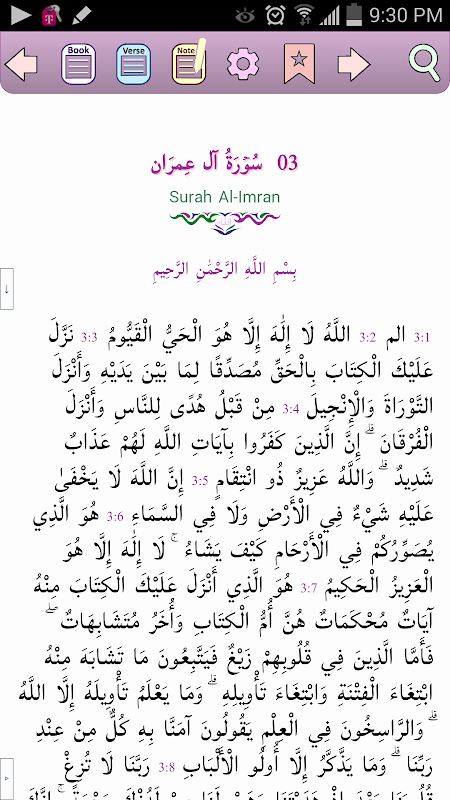 9:30 PM
Book
Verse
Note
03 سُوْرَةُ آلِ عِمرَان
Surah Al-Imran
بِسْمِ اللَّهِ الرَّحْمَٰنِ الرَّحِيمِ
3:1 الم 3:2 اللَّهُ لَا إِلَٰهَ إِلَّا هُوَ الْحَيُّ الْقَيُّومُ 3:3 نَزَّلَ
عَلَيْكَ الْكِتَابَ بِالْحَقِّ مُصَدِّقًا لِمَا بَيْنَ يَدَيْهِ وَأَنْزَلَ
التَّوْرَاةَ وَالْإِنْجِيلَ 3:4 مِنْ قَبْلُ هُدًى لِلنَّاسِ وَأَنْزَلَ
الْفُرْقَانَ ۗ إِنَّ الَّذِينَ كَفَرُوا بِآيَاتِ اللَّهِ لَهُمْ عَذَابٌ
شَدِيدٌ ۗ وَاللَّهُ عَزِيزٌ ذُو انْتِقَامٍ 3:5 إِنَّ اللَّهَ لَا يَخْفَىٰ
عَلَيْهِ شَيْءٌ فِي الْأَرْضِ وَلَا فِي السَّمَاءِ 3:6 هُوَ الَّذِي
يُصَوِّرُكُمْ فِي الْأَرْحَامِ كَيْفَ يَشَاءُ ۚ لَا إِلَٰهَ إِلَّا هُوَ
الْعَزِيزُ الْحَكِيمُ 3:7 هُوَ الَّذِي أَنْزَلَ عَلَيْكَ الْكِتَابَ مِنْهُ
آيَاتٌ مُحْكَمَاتٌ هُنَّ أُمُّ الْكِتَابِ وَأُخَرُ مُتَشَابِهَاتٌ ۖ
فَأَمَّا الَّذِينَ فِي قُلُوبِهِمْ زَيْغٌ فَيَتَّبِعُونَ مَا تَشَابَهَ مِنْهُ
ابْتِغَاءَ الْفِتْنَةِ وَابْتِغَاءَ تَأْوِيلِهِ ۗ وَمَا يَعْلَمُ تَأْوِيلَهُ إِلَّا اللَّهُ
ۗ وَالرَّاسِخُونَ فِي الْعِلْمِ يَقُولُونَ آمَنَّا بِهِ كُلٌّ مِنْ عِنْدِ
رَبِّنَا ۗ وَمَا يَذَّكَّرُ إِلَّا أُولُو الْأَلْبَابِ 3:8 رَبَّنَا لَا تُزِغْ